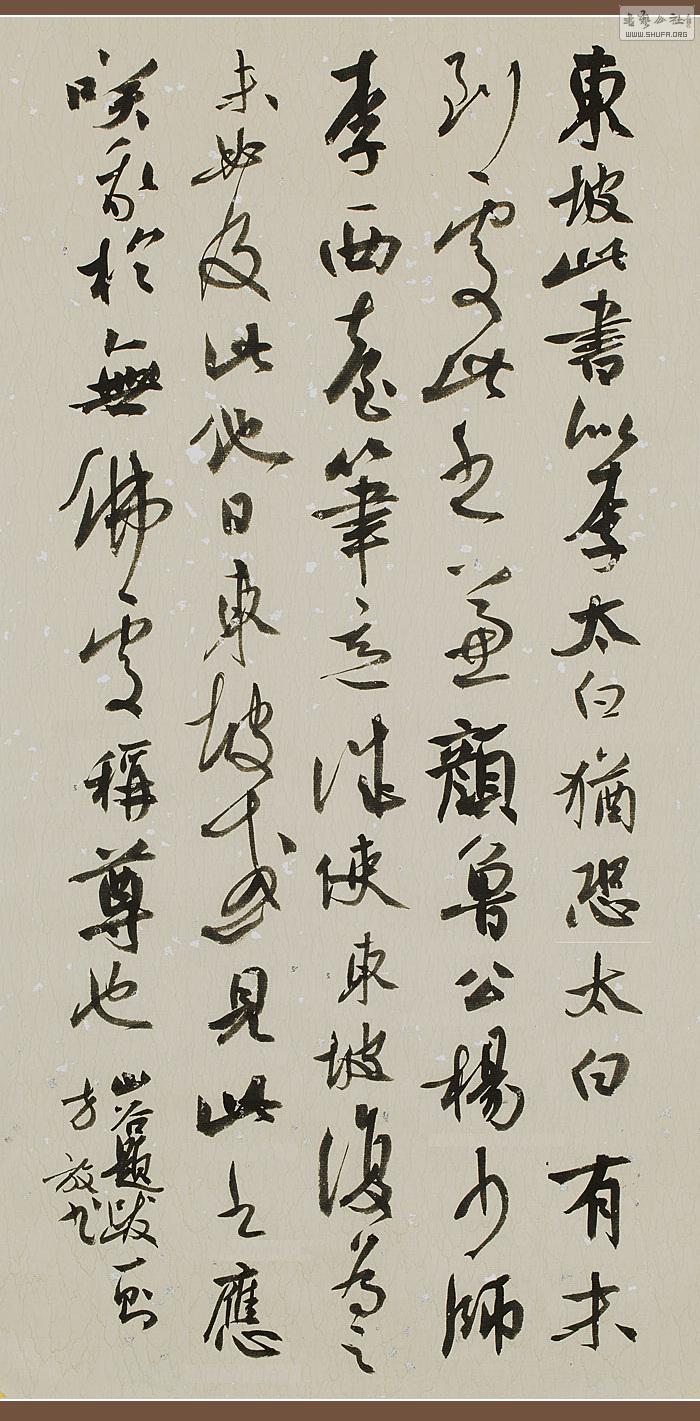 東坡此書似李太白猶恐太白有未
到處此書兼顏魯公楊少師
李西臺筆意試使東坡復為之
未必及此他日東坡或見此書應
咲我於無佛處稱尊也
山谷題跋一則
方放書
書藝公社
WWW.SHUFA.ORG